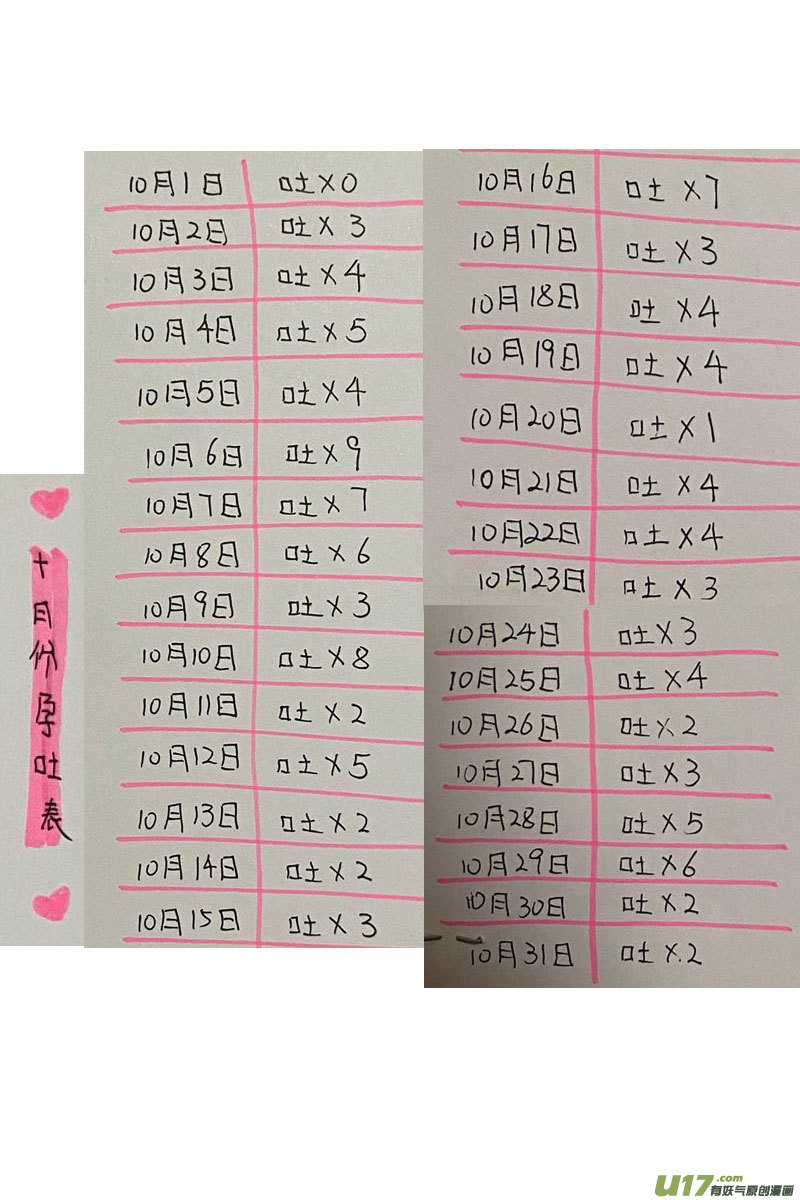 十月份孕吐表
10月1日 吐×0
10月2日 吐×3
10月3日 吐×4
10月4日 吐×5
10月5日 吐×4
10月6日 吐×9
10月7日 吐×7
10月8日 吐×6
10月9日 吐×3
10月10日 吐×8
10月11日 吐×2
10月12日 吐×5
10月13日 吐×2
10月14日 吐×2
10月15日 吐×3
10月16日 吐×7
10月17日 吐×3
10月18日 吐×4
10月19日 吐×4
10月20日 吐×1
10月21日 吐×4
10月22日 吐×4
10月23日 吐×3
10月24日 吐×3
10月25日 吐×4
10月26日 吐×2
10月27日 吐×3
10月28日 吐×5
10月29日 吐×6
10月30日 吐×2
10月31日 吐×.2
U17.com
有妖气原创漫画